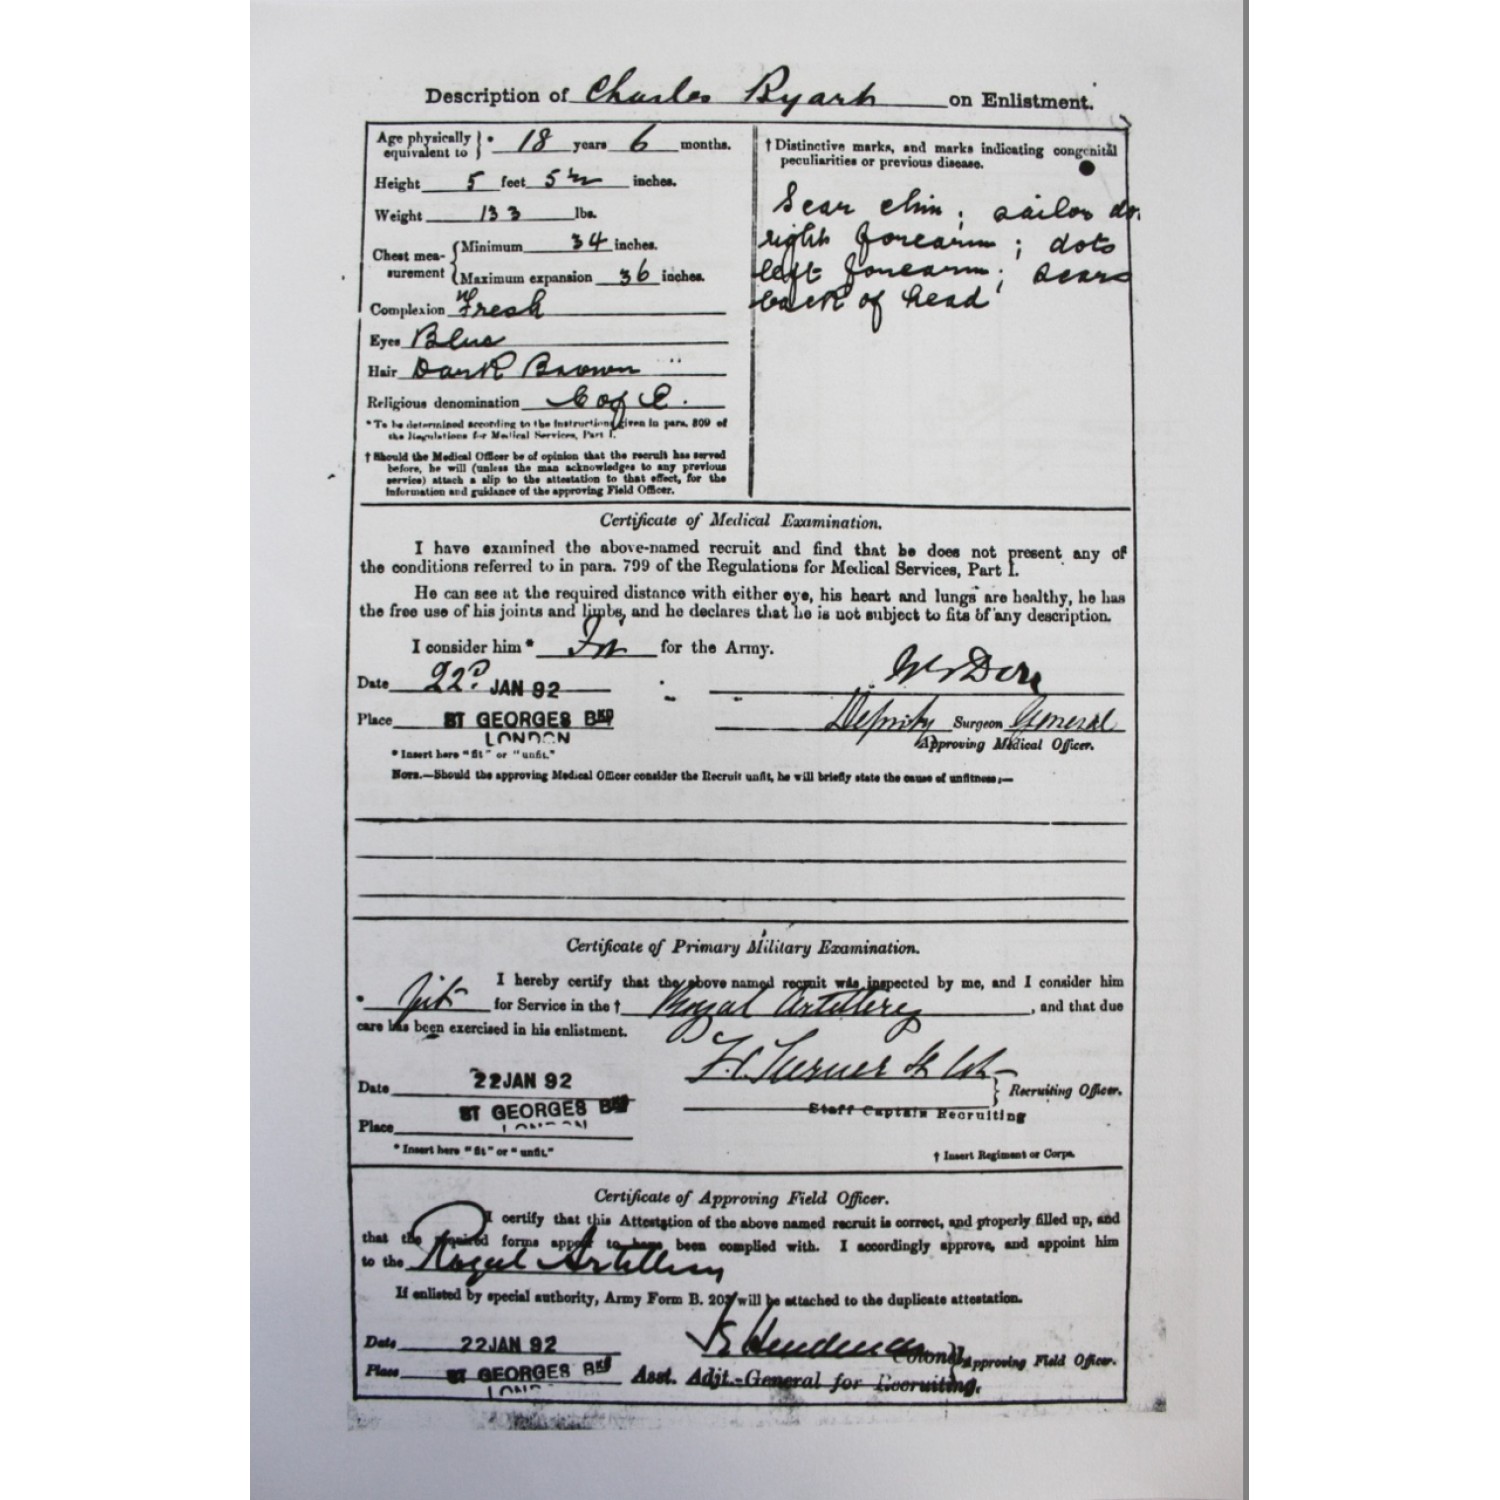 Description of Charles Byart on Enlistment.
Age physically equivalent to * 18 years 6 months.
Height 5 feet 5 ½ inches.
Weight 133 lbs.
Chest measurement
Minimum 34 inches.
Maximum expansion 36 inches.
Complexion Fresh
Eyes Blue
Hair Dark Brown
Religious denomination C of E.
* To be determined according to the instructions given in para. 809 of
the Regulations for Medical Services, Part I.
† Should the Medical Officer be of opinion that the recruit has served
before, he will (unless the man acknowledges to any previous
service) attach a slip to the attestation to that effect, for the
information and guidance of the approving Field Officer.
† Distinctive marks, and marks indicating congenital
peculiarities or previous disease.
Scar chin; sailor do.
right forearm; dots
left forearm; scars
back of head
Certificate of Medical Examination.
I have examined the above-named recruit and find that he does not present any of
the conditions referred to in para. 799 of the Regulations for Medical Services, Part I.
He can see at the required distance with either eye, his heart and lungs are healthy, he has
the free use of his joints and limbs, and he declares that he is not subject to fits of any description.
I consider him * Fit for the Army.
Date 22d JAN 92
Place ST GEORGES BKS
LONDON
Deputy Surgeon General
Approving Medical Officer.
* Insert here "fit" or "unfit."
NOTE.—Should the approving Medical Officer consider the Recruit unfit, he will briefly state the cause of unfitness;—
Certificate of Primary Military Examination.
I hereby certify that the above named recruit was inspected by me, and I consider him
* fit for Service in the † Royal Artillery, and that due
care has been exercised in his enlistment.
Date 22 JAN 92
Place ST GEORGES
LONDON
F.C. Turner Lt Col
Recruiting Officer.
Staff Captain Recruiting
* Insert here "fit" or "unfit."
† Insert Regiment or Corps.
Certificate of Approving Field Officer.
I certify that this Attestation of the above named recruit is correct, and properly filled up, and
that the required forms appear to have been complied with. I accordingly approve, and appoint him
to the Royal Artillery
If enlisted by special authority, Army Form B. 203 will be attached to the duplicate attestation.
Date 22 JAN 92
Place ST GEORGES BKS
LOND
Henderson Colonel
Approving Field Officer.
Asst. Adjt.-General for Recruiting.